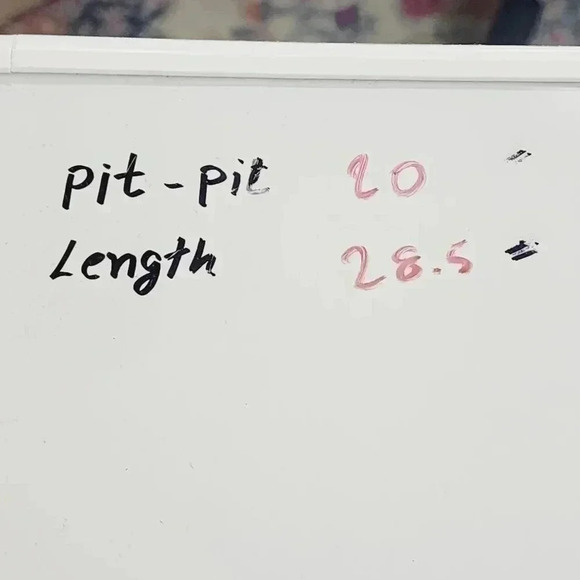 Pit - Pit 20 "
Length 28.5 "